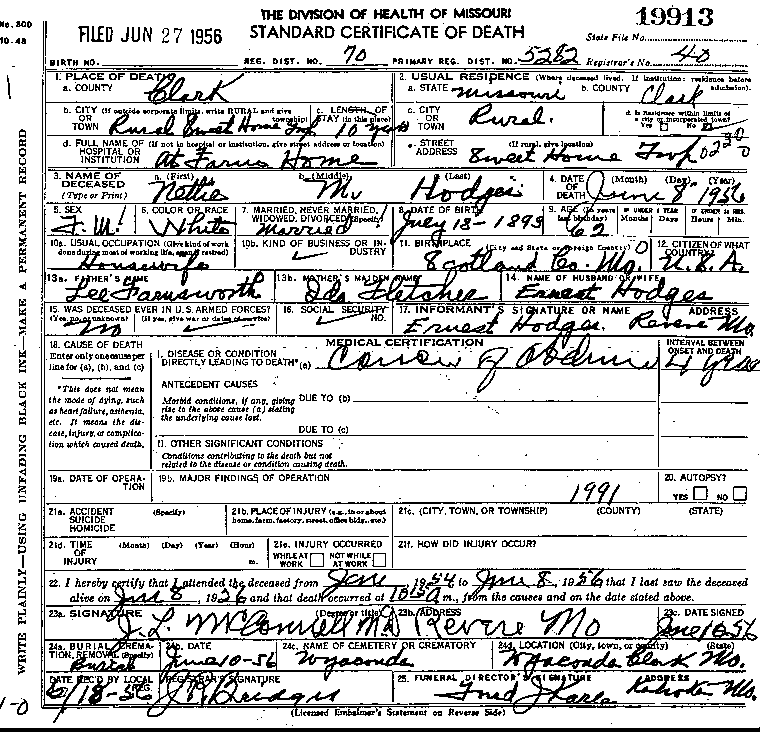 No. 300
10-48
WRITE PLAINLY—USING UNFADING BLACK INK—MAKE A PERMANENT RECORD
THE DIVISION OF HEALTH OF MISSOURI
19913
FILED JUN 27 1956
STANDARD CERTIFICATE OF DEATH
State File No.
BIRTH NO. REG. DIST. NO. 70 PRIMARY REG. DIST. NO. 5282 Registrar's No. 40
1. PLACE OF DEATH
a. COUNTY Clark
2. USUAL RESIDENCE (Where deceased lived. If institution: residence before admission).
a. STATE Missouri b. COUNTY Clark
b. CITY (If outside corporate limits, write RURAL and give township)
OR TOWN Rural Sweet Home Twp.
c. LENGTH OF STAY (in this place) 10 years
c. CITY OR TOWN Rural.
d. Is residence within limits of a city or incorporated town?
Yes No
d. FULL NAME OF (If not in hospital or institution, give street address or location)
HOSPITAL OR INSTITUTION At Farm Home
e. STREET ADDRESS (If rural, give location)
Sweet Home Twp
3. NAME OF DECEASED (Type or Print)
a. (First) Nettie b. (Middle) M. c. (Last) Hodges
4. DATE OF DEATH (Month) (Day) (Year) June 8 1956
5. SEX F. M. 6. COLOR OR RACE White
7. MARRIED, NEVER MARRIED, WIDOWED, DIVORCED (Specify) Married
8. DATE OF BIRTH July 18-1893
9. AGE (In years last birthday) 62 IF UNDER 1 YEAR Months Days IF UNDER 24 HRS. Hours Min.
10a. USUAL OCCUPATION (Give kind of work done during most of working life, even if retired) Housewife
10b. KIND OF BUSINESS OR INDUSTRY
11. BIRTHPLACE (City and State or Foreign Country) Scotland Co. Mo.
12. CITIZEN OF WHAT COUNTRY? U.S.A.
13a. FATHER'S NAME Lee Farnsworth
13b. MOTHER'S MAIDEN NAME Ida Fletcher
14. NAME OF HUSBAND OR WIFE Ernest Hodges
15. WAS DECEASED EVER IN U.S. ARMED FORCES?
(Yes, no, or unknown) (If yes, give war or dates of service) no
16. SOCIAL SECURITY NO.
17. INFORMANT'S SIGNATURE OR NAME ADDRESS
Ernest Hodges. Revere Mo.
18. CAUSE OF DEATH
Enter only one cause per line for (a), (b), and (c)
*This does not mean the mode of dying, such as heart failure, asthenia, etc. It means the disease, injury, or complication which caused death.
MEDICAL CERTIFICATION
INTERVAL BETWEEN ONSET AND DEATH
I. DISEASE OR CONDITION DIRECTLY LEADING TO DEATH* (a) Cancer of
4 yrs
ANTECEDENT CAUSES
Morbid conditions, if any, giving rise to the above cause (a) stating the underlying cause last.
DUE TO (b)
DUE TO (c)
II. OTHER SIGNIFICANT CONDITIONS
Conditions contributing to the death but not related to the disease or condition causing death.
19a. DATE OF OPERATION 19b. MAJOR FINDINGS OF OPERATION
1991
20. AUTOPSY?
YES NO
21a. ACCIDENT SUICIDE HOMICIDE (Specify)
21b. PLACE OF INJURY (e.g., in or about home, farm, factory, street, office bldg., etc.)
21c. (CITY, TOWN, OR TOWNSHIP) (COUNTY) (STATE)
21d. TIME OF INJURY (Month) (Day) (Year) (Hour) m.
21e. INJURY OCCURRED
WHILE AT WORK NOT WHILE AT WORK
21f. HOW DID INJURY OCCUR?
22. I hereby certify that I attended the deceased from June, 1954 to June 8, 1956 that I last saw the deceased
alive on June 8, 1956 and that death occurred at m., from the causes and on the date stated above.
23a. SIGNATURE (Degree or title) 23b. ADDRESS 23c. DATE SIGNED
J. L. McConnell M.D. Revere Mo June 10 56
24a. BURIAL, CREMATION, REMOVAL (Specify) Burial
24b. DATE June 10-56
24c. NAME OF CEMETERY OR CREMATORY Wyaconda
24d. LOCATION (City, town, or county) (State) Wyaconda Clark Mo.
DATE REC'D BY LOCAL REG. 6/18-56
REGISTRAR'S SIGNATURE Bridges
25. FUNERAL DIRECTOR'S SIGNATURE ADDRESS
Fred J Karle Kahoka Mo.
(Licensed Embalmer's Statement on Reverse Side)